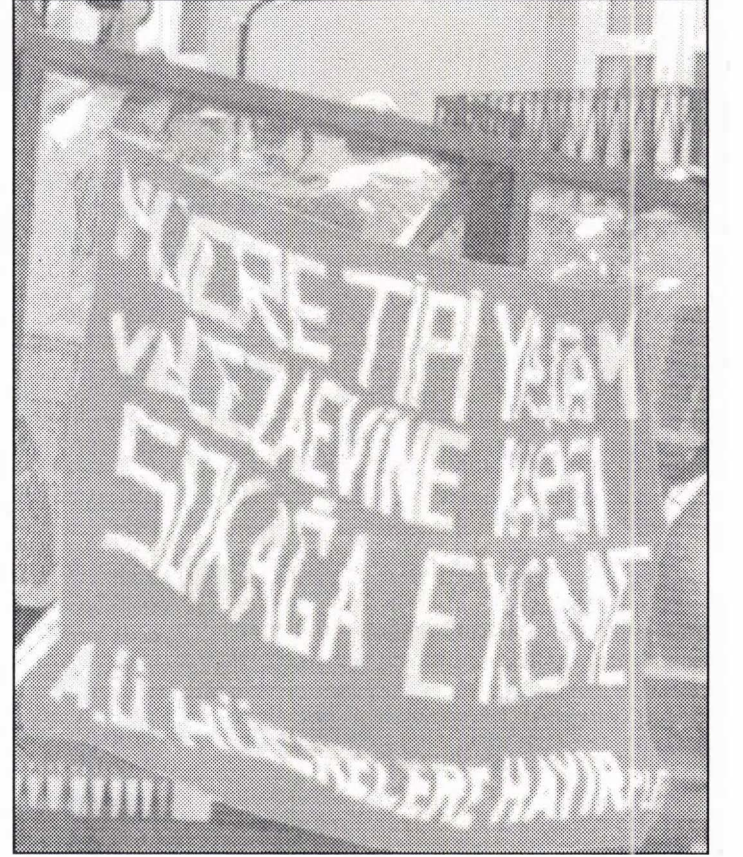 HÜCRE TİPİ YAŞAM
VE CEZAEVİNE KARŞI
SOKAĞA EYLEME
A.Ü. HÜCRELERE HAYIR